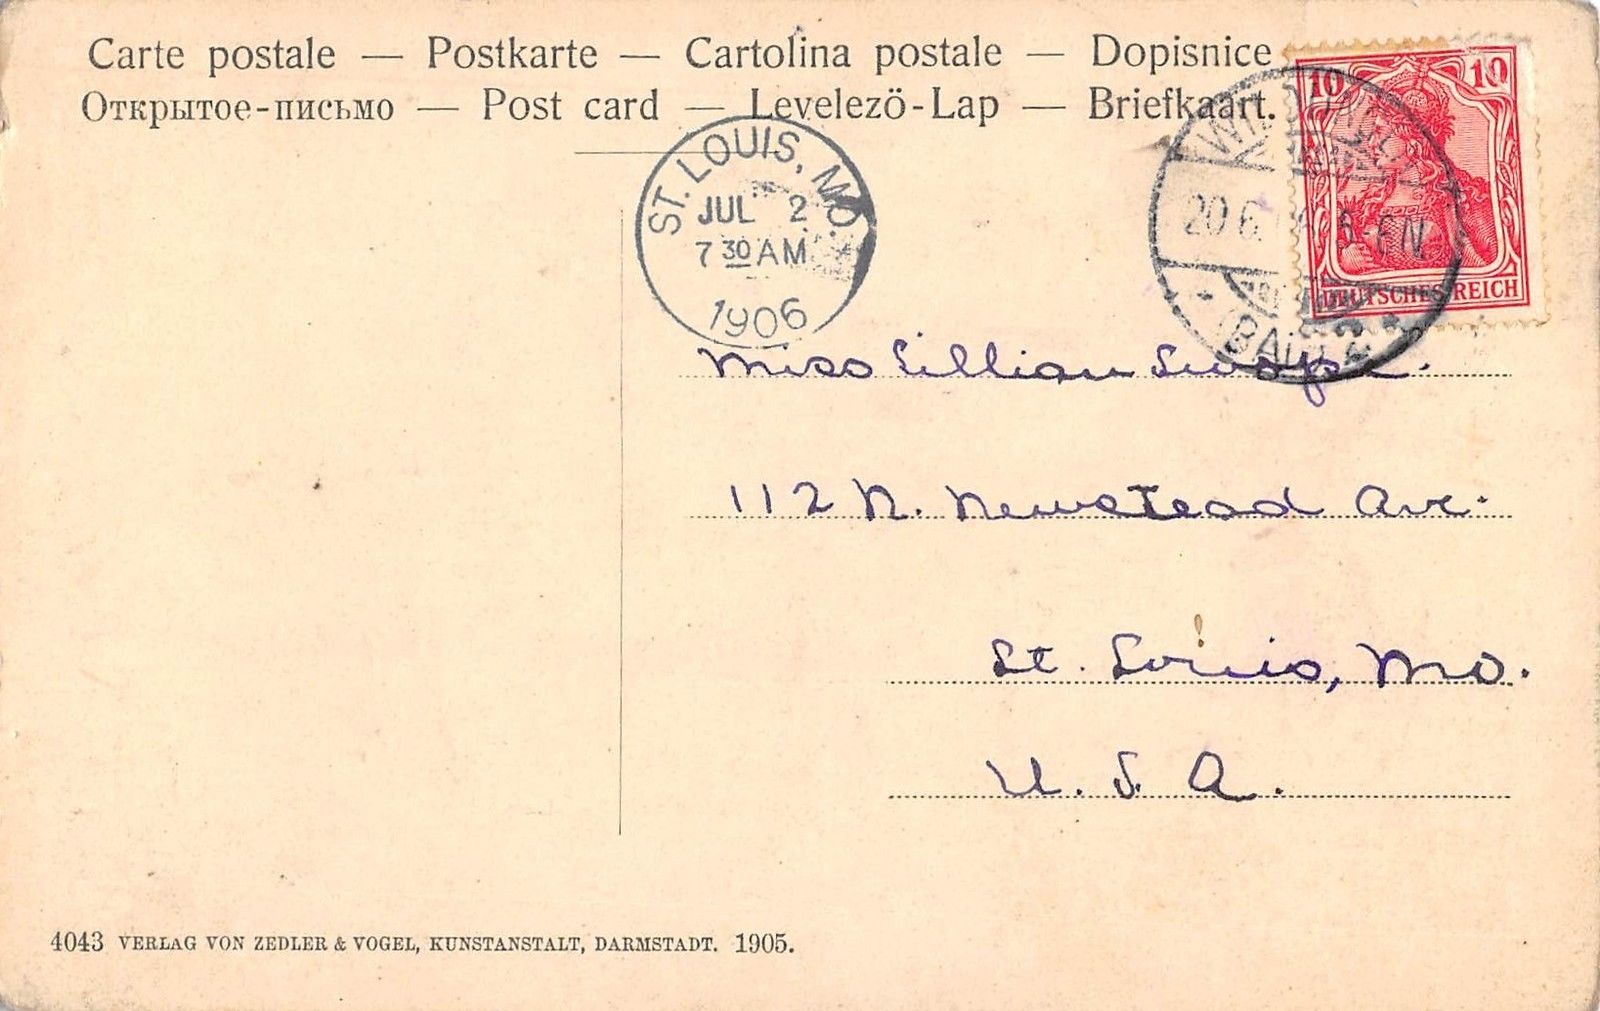 Carte postale — Postkarte — Cartolina postale — Dopisnice
Открытое-письмо — Post card — Levelező-Lap — Briefkaart.
ST. LOUIS, MO.
JUL 2
7 30 AM
1906
20.6.
6-7N
10 10
DEUTSCHES REICH
Miss Lillian Swope.
112 N. Newstead Ave.
St. Louis, Mo.
U. S. A.
4043 VERLAG VON ZEDLER & VOGEL, KUNSTANSTALT, DARMSTADT. 1905.